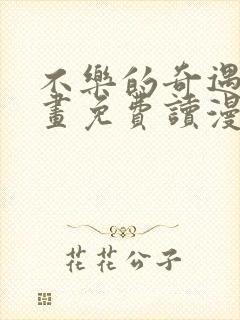 不樂的奇遇
畫免費讀漫
花花公子